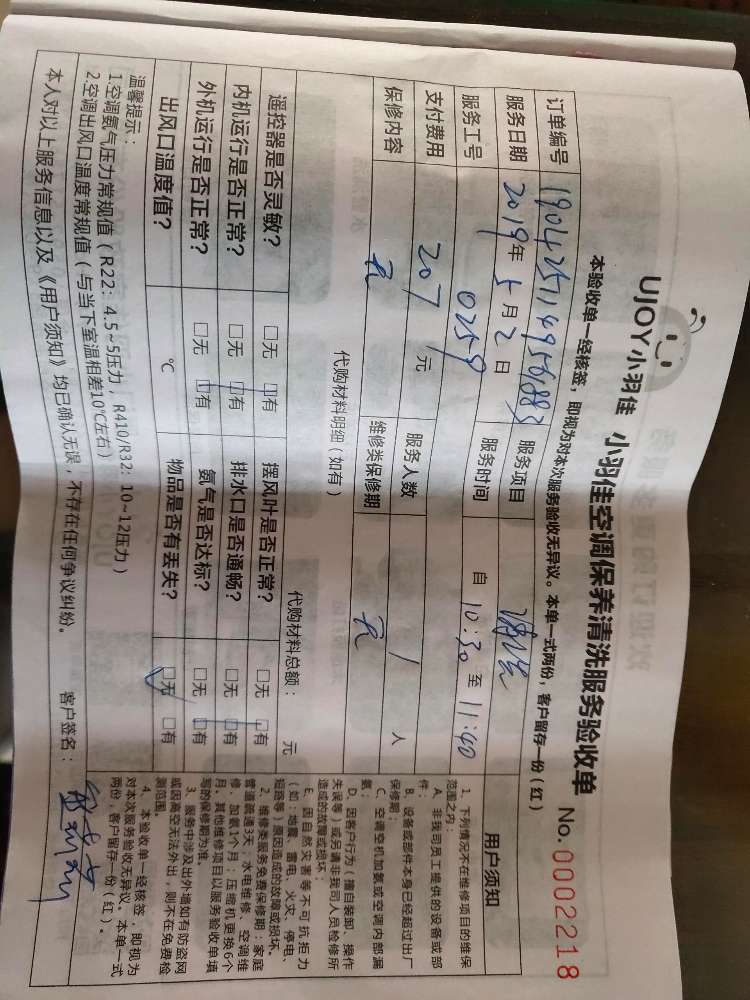 UJOY小羽佳 小羽佳空调保养清洗服务验收单 No.0002218
本验收单一经核签，即视为对本次服务验收无异议。本单一式两份，客户留存一份（红）
订单编号 服务项目 清洗
服务日期 2019年5月2日 服务时间 自10:30至11:40
服务工号 0259
支付费用 207元 服务人数 1人
保修内容 无 维修类保修期 无
代购材料明细（如有） 代购材料总额： 元
遥控器是否灵敏？ □无 □有 摆风叶是否正常？ □无 □有
内机运行是否正常？ □无 □有 排水口是否通畅？ □无 □有
外机运行是否正常？ □无 □有 氨气是否达标？ □无 □有
出风口温度值？ ℃ 物品是否有丢失？ □无 □有
温馨提示：
1.空调氨气压力常规值（R22：4.5~5压力，R410/R32：10~12压力）
2.空调出风口温度常规值（与当下室温相差10℃左右）
本人对以上服务信息以及《用户须知》均已确认无误，不存在任何争议纠纷。 客户签名：
用户须知
1、下列情况不在维修项目的维保
范围之内：
A、非我司员工提供的设备或部
件；
B、设备或部件本身已经超过出厂
保修期；
C、空调空机加氨或空调内部漏
氨；
D、因客户行为（擅自装卸、操作
失误等）或另请非我司人员检修所
造成的故障或损坏；
E、因自然灾害等不可抗拒力
（如：地震、雷电、火灾、停电、
短路等）原因造成的故障或损坏。
2、维修类服务免费保修期：家庭
管道疏通3天，水电维修、空调维
修、加氨1个月；压缩机更换6个
月。其他维修项目以服务验收单填
写的保修期为准。
3、服务中涉及出外墙如有防盗网
或因高空无法外出，则不在免费检
测范围。
4、本验收单一经核签，即视为
对本次服务验收无异议。本单一式
两份，客户留存一份（红）。